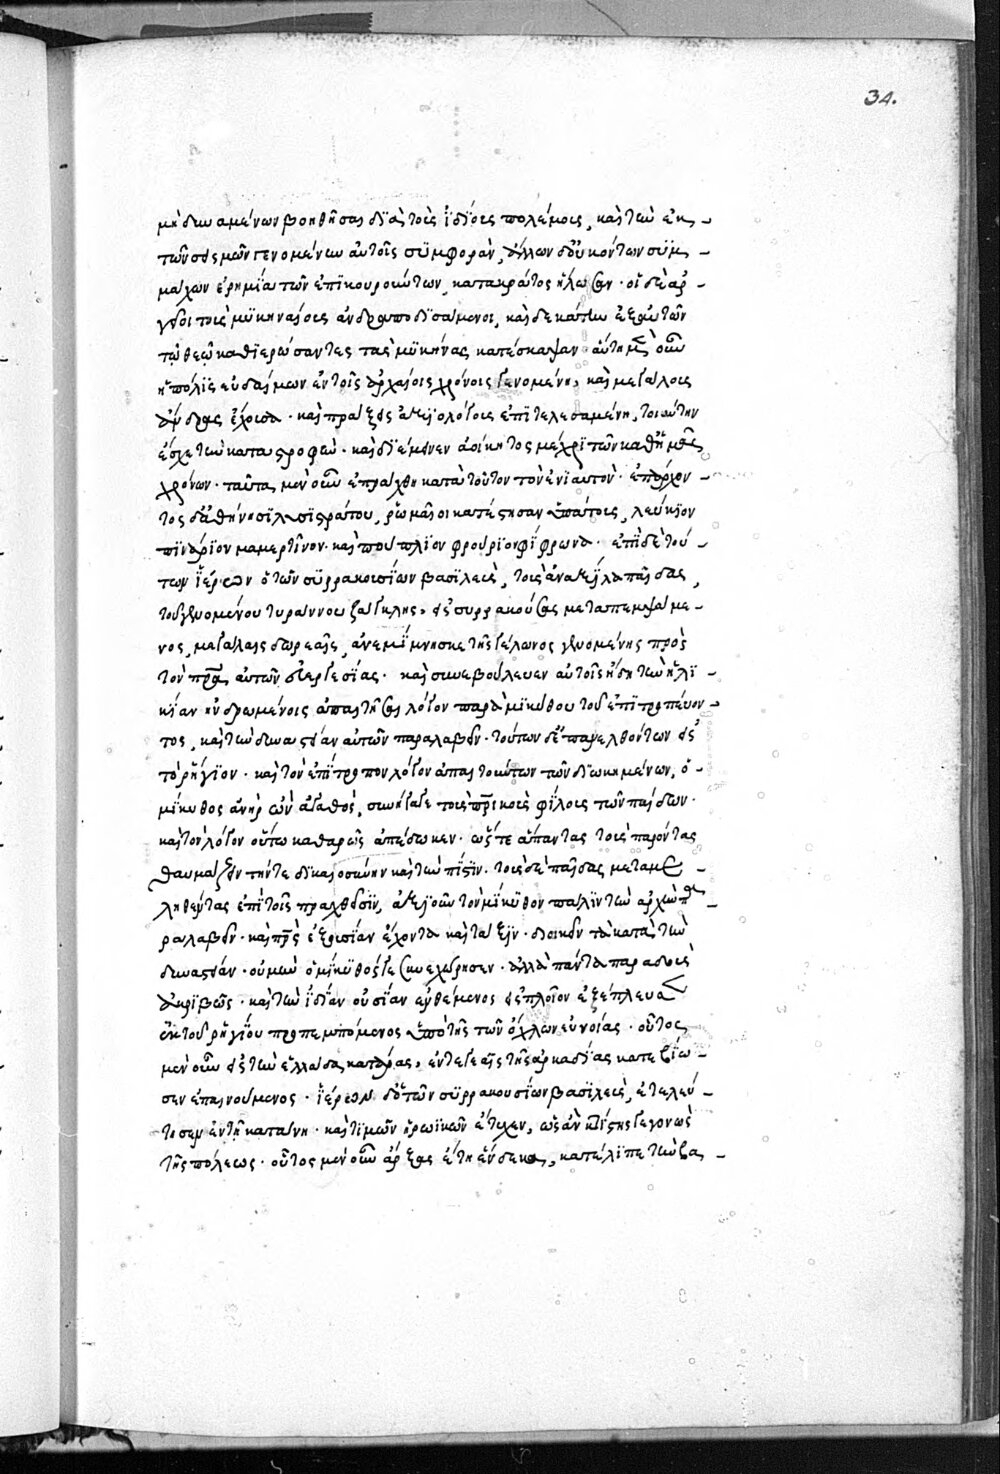 34.
μὴ δυναμένων βοηθῆσαι διὰ τοὺς ἰδίους πολέμους, καὶ τὴν ἐκ
τῶν σεισμῶν γενομένην αὐτοῖς συμφοράν, ἄλλων δ' οὐκ ὄντων συμ
μάχων ἐρημίᾳ τῶν ἐπικουρούντων, κατὰ κράτος ἥλωσαν· οἱ δὲ ἀρ
γεῖοι τοὺς μυκηναίους ἀνδραποδισάμενοι, καὶ δεκάτην ἐξ αὐτῶν
τῷ θεῷ καθιερώσαντες τὰς μυκήνας κατέσκαψαν· αὕτη μὲν οὖν
ἡ πόλις εὐδαίμων ἐν τοῖς ἀρχαίοις χρόνοις γενομένη, καὶ μεγάλους
ἄνδρας ἔχουσα· καὶ πράξεις ἀξιολόγους ἐπιτελεσαμένη, τοιαύτην
ἔσχε τὴν καταστροφήν· καὶ διέμεινεν ἀοίκητος μέχρι τῶν καθ' ἡμᾶς
χρόνων· ταῦτα μὲν οὖν ἐπράχθη κατὰ τοῦτον τὸν ἐνιαυτόν· ἐπ' ἄρχον
τος δ' ἀθήνησι λυσιστράτου, ῥωμαῖοι κατέστησαν ὑπάτους, λεύκιον
πινάριον μαμερτῖνον· καὶ πούπλιον φρούριον φίφρωνα· ἐπὶ δὲ τού
των ἱέρων ὁ τῶν συρρακουσίων βασιλεὺς, τοὺς ἀναξίλα παῖδας,
τοῦ γενομένου τυράννου ζάγκλης, εἰς συρρακούσας μεταπεμψάμε
νος, μεγάλαις δωρεαῖς, ἀνεμίμνησκε τῆς γέλωνος γενομένης πρὸς
τὸν πατέρα αὐτῶν εὐεργεσίας· καὶ συνεβούλευεν αὐτοῖς ἤδη τὴν ἡλι
κίαν ἠνδρωμένοις ἀπαιτῆσαι λόγον παρὰ μικύθου τοῦ ἐπιτροπεύον
τος, καὶ τὴν δυναστείαν αὐτῶν παραλαβεῖν· τούτων δ' ἐπανελθόντων εἰς
τὸ ῥήγιον· καὶ τὸν ἐπίτροπον λόγον ἀπαιτούντων τῶν διωκημένων, ὁ
μίκυθος ἀνὴρ ὢν ἀγαθός, συνήγαγε τοὺς πατρικοὺς φίλους τῶν παίδων·
καὶ τὸν λόγον οὕτω καθαρῶς ἀπέδωκεν· ὥστε ἅπαντας τοὺς παρόντας
θαυμάζειν τήν τε δικαιοσύνην καὶ τὴν πίστιν· τοὺς δὲ παῖδας μεταμε
ληθέντας ἐπὶ τοῖς πραχθεῖσιν, ἀξιοῦν τὸν μίκυθον πάλιν τὴν ἀρχὴν πα
ραλαβεῖν· καὶ πατρὸς ἐξουσίαν ἔχοντα καὶ τάξιν· διοικεῖν τὰ κατὰ τὴν
δυναστείαν· οὐ μὴν ὁ μίκυθός γε συνεχώρησεν· ἀλλὰ πάντα παραδοὺς
ἀκριβῶς· καὶ τὴν ἰδίαν οὐσίαν ἐνθέμενος εἰς πλοῖον ἐξέπλευσεν
ἐκ τοῦ ῥηγίου προπεμπόμενος ὑπὸ τῆς τῶν ὄχλων εὐνοίας· οὗτος
μὲν οὖν εἰς τὴν ἑλλάδα κατάρας, ἐν τεγέᾳ τῆς ἀρκαδίας κατεβίω
σεν ἐπαινούμενος· ἱέρων δ' ὁ τῶν συρρακουσίων βασιλεὺς, ἐτελεύ
τησεν ἐν τῇ κατάνῃ· καὶ τιμῶν ἡρωικῶν ἔτυχεν, ὡς ἂν κτίστης γεγονὼς
τῆς πόλεως· οὗτος μὲν οὖν ἄρξας ἔτη ἕνδεκα, κατέλιπε τὴν βα